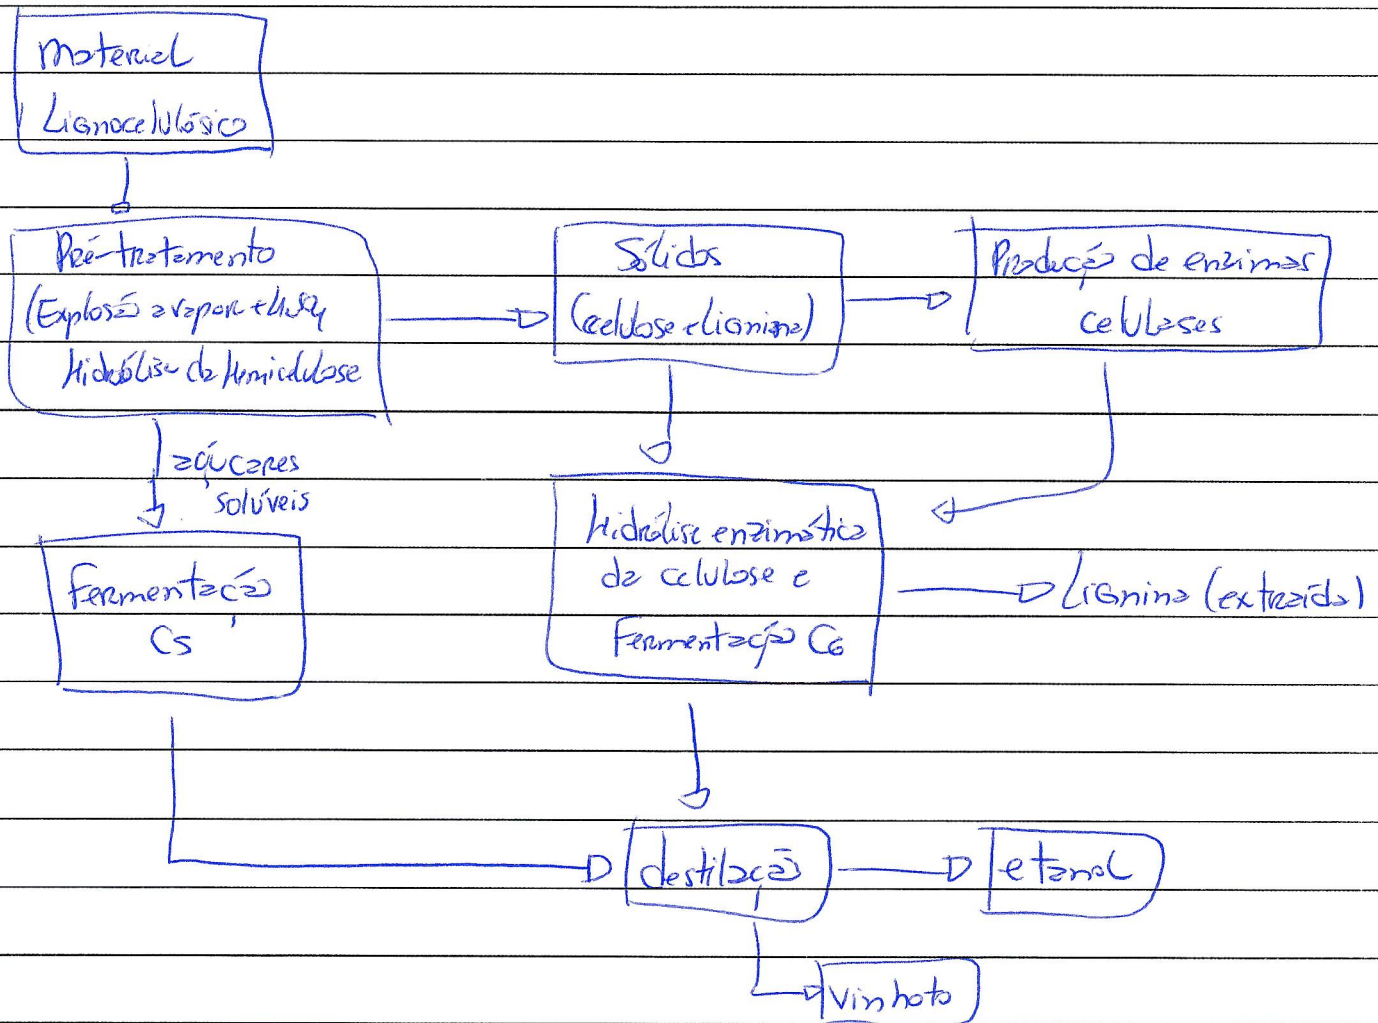 Material
Lignocelulósico
Pré-tratamento
(Explosão a vapor + H2SO4
Hidrólise da Hemicelulose
Sólidos
(celulose e lignina)
Produção de enzimas
celulases
açúcares
solúveis
Fermentação
C5
Hidrólise enzimática
da celulose e
Fermentação C6
Lignina (extraída)
destilação
etanol
Vinhoto